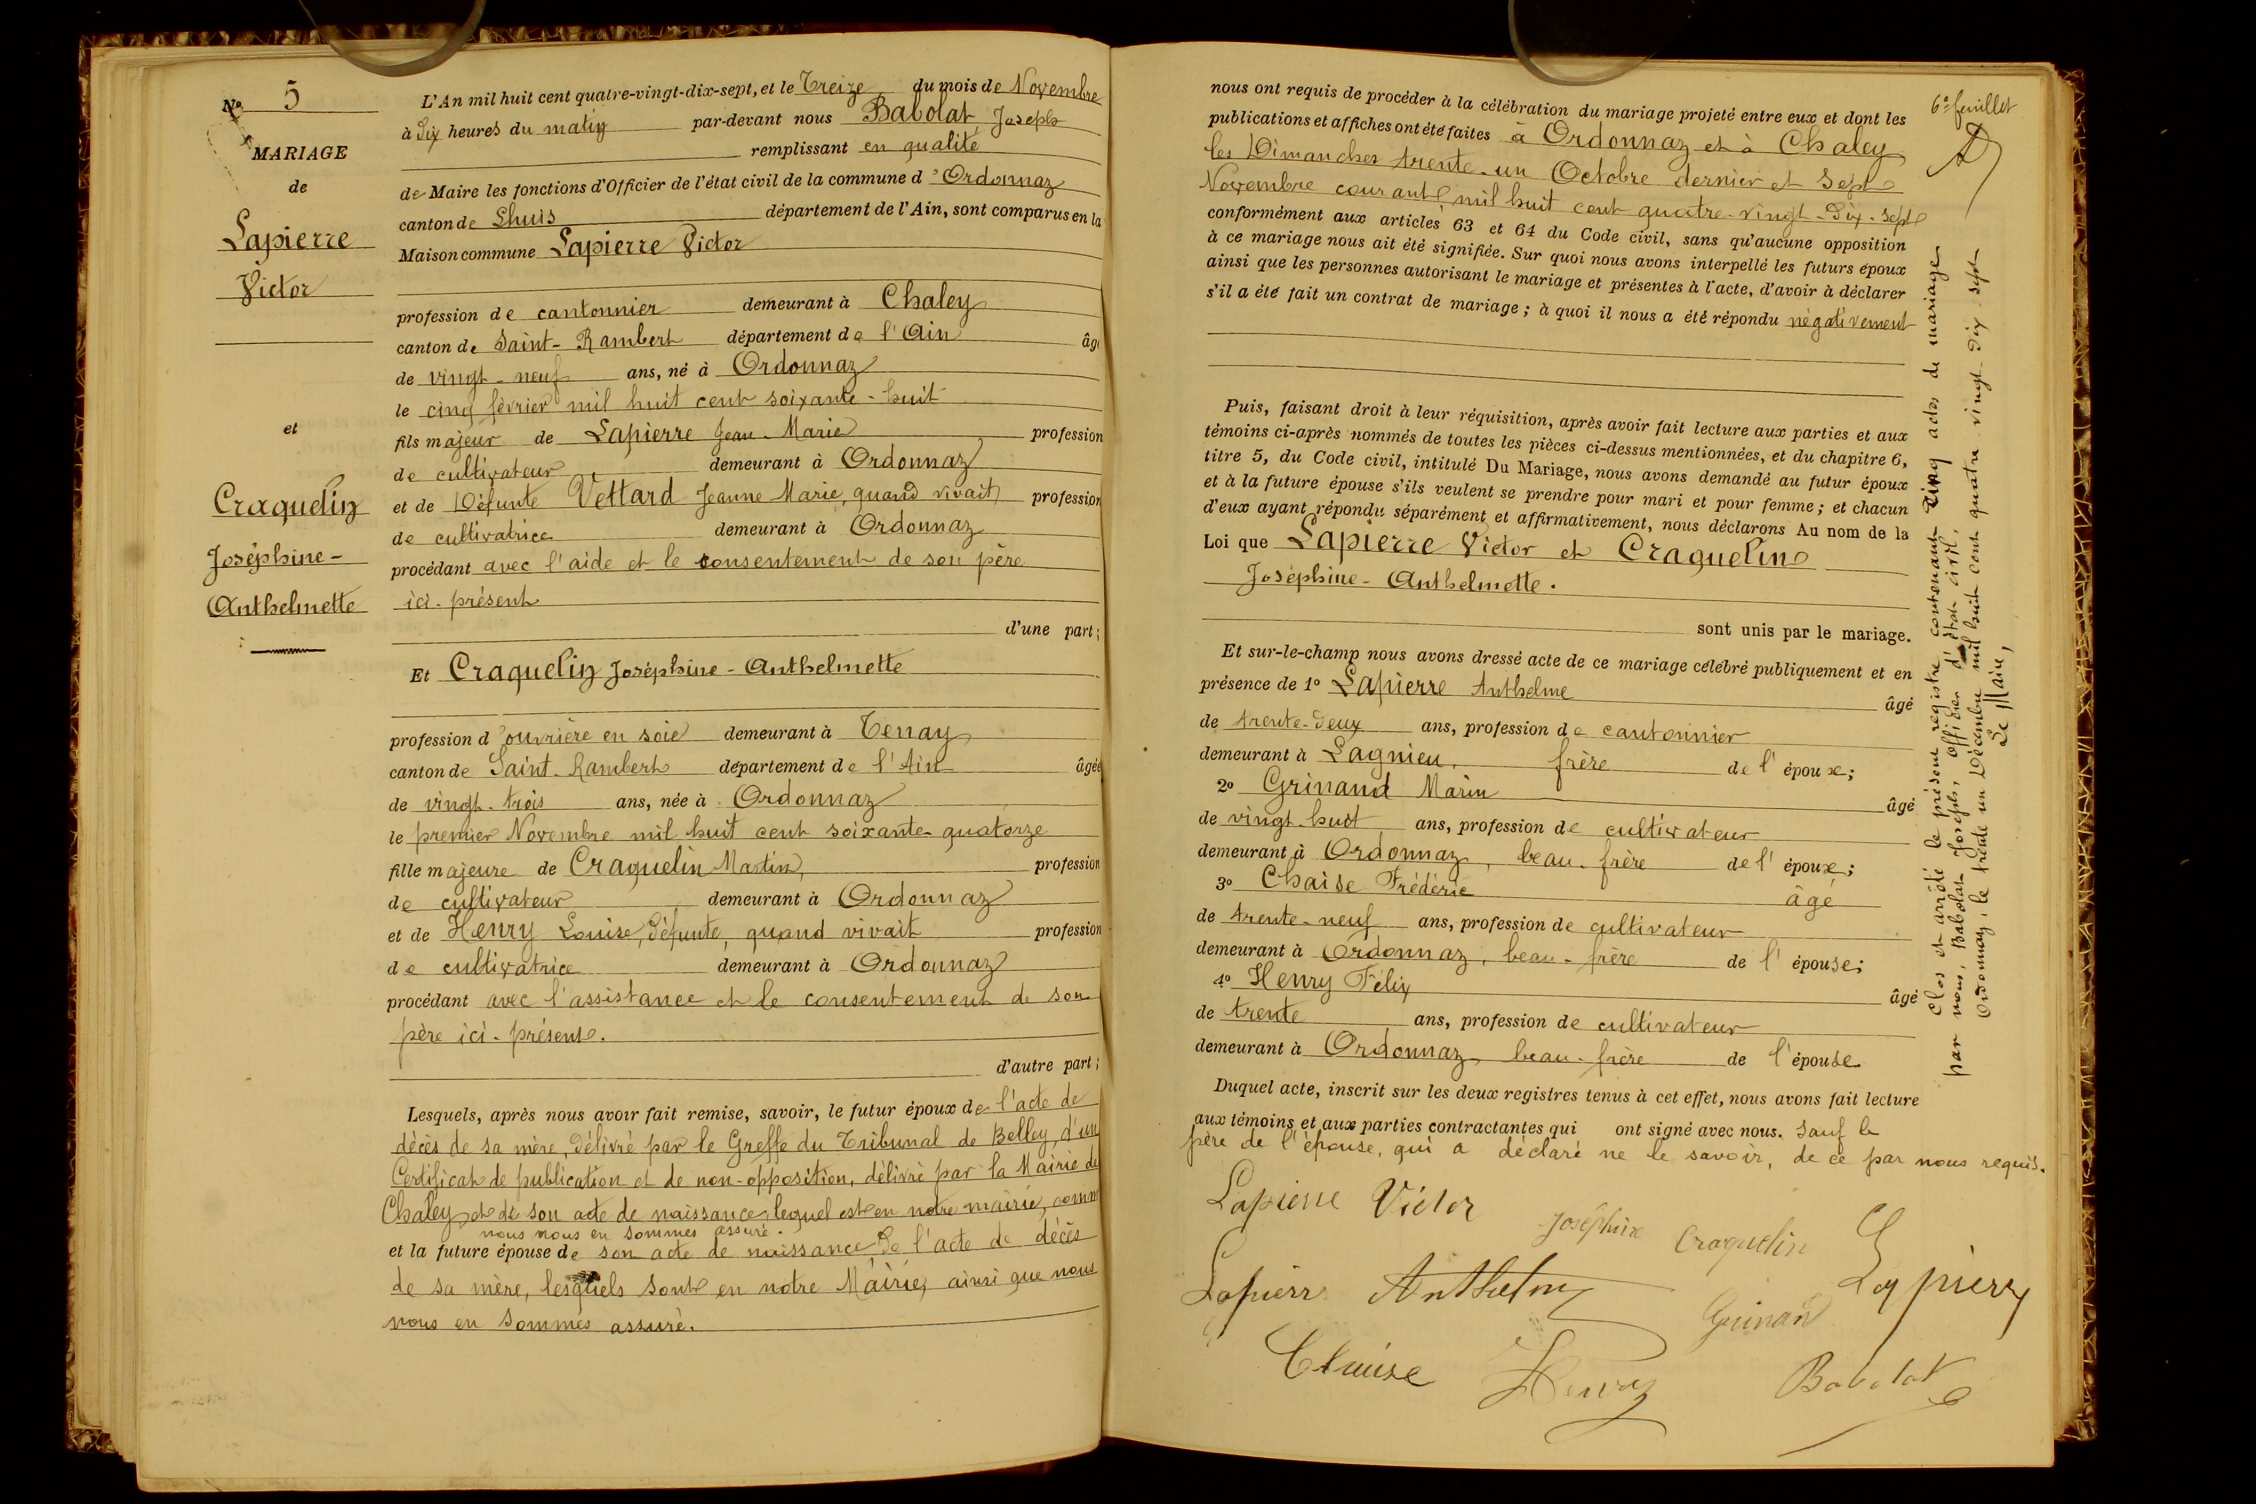 Nº 5
MARIAGE
de
Lapierre
Victor
et
Craquelin
Joséphine-
Anthelmette
L'An mil huit cent quatre-vingt-dix-sept, et le Treize du mois de Novembre
à Six heures du matin par-devant nous Babolat Joseph
remplissant en qualité
de Maire les fonctions d'Officier de l'état civil de la commune d'Ordonnaz
canton de Lhuis département de l'Ain, sont comparus en la
Maison commune Lapierre Victor
profession de cantonnier demeurant à Chaley
canton de Saint-Rambert département de l'Ain âgé
de vingt-neuf ans, né à Ordonnaz
le cinq février mil huit cent soixante-huit
fils majeur de Lapierre Jean-Marie profession
de cultivateur demeurant à Ordonnaz
et de Défunte Vettard Jeanne Marie, quand vivait profession
de cultivatrice demeurant à Ordonnaz
procédant avec l'aide et le consentement de son père
ici-présent
d'une part;
Et Craquelin Joséphine-Anthelmette
profession d'ouvrière en soie demeurant à Tenay
canton de Saint-Rambert département de l'Ain âgée
de vingt-trois ans, née à Ordonnaz
le premier Novembre mil huit cent soixante-quatorze
fille majeure de Craquelin Martin, profession
de cultivateur demeurant à Ordonnaz
et de Henry Louise, défunte, quand vivait profession
de cultivatrice demeurant à Ordonnaz
procédant avec l'assistance et le consentement de son
père ici-présent.
d'autre part;
Lesquels, après nous avoir fait remise, savoir, le futur époux de l'acte de
décès de sa mère, délivré par le Greffe du Tribunal de Belley, d'un
Certificat de publication et de non-opposition, délivré par la Mairie de
Chaley et de son acte de naissance, lequel est en notre mairie, comme
nous nous en sommes assuré.
et la future épouse de son acte de naissance de l'acte de décès
de sa mère, lesquels sont en notre Mairie, ainsi que nous
nous en sommes assuré.
6e feuillet
nous ont requis de procéder à la célébration du mariage projeté entre eux et dont les
publications et affiches ont été faites à Ordonnaz et à Chaley
les Dimanches trente-un Octobre dernier et sept
Novembre courant, mil huit cent quatre-vingt-dix-sept
conformément aux articles 63 et 64 du Code civil, sans qu'aucune opposition
à ce mariage nous ait été signifiée. Sur quoi nous avons interpellé les futurs époux
ainsi que les personnes autorisant le mariage et présentes à l'acte, d'avoir à déclarer
s'il a été fait un contrat de mariage; à quoi il nous a été répondu négativement
Puis, faisant droit à leur réquisition, après avoir fait lecture aux parties et aux
témoins ci-après nommés de toutes les pièces ci-dessus mentionnées, et du chapitre 6,
titre 5, du Code civil, intitulé Du Mariage, nous avons demandé au futur époux
et à la future épouse s'ils veulent se prendre pour mari et pour femme; et chacun
d'eux ayant répondu séparément et affirmativement, nous déclarons Au nom de la
Loi que Lapierre Victor et Craquelin
Joséphine-Anthelmette.
sont unis par le mariage.
Et sur-le-champ nous avons dressé acte de ce mariage célébré publiquement et en
présence de 1º Lapierre Anthelme âgé
de trente-deux ans, profession de cantonnier
demeurant à Lagnieu, frère de l'époux;
2º Grinand Marin âgé
de vingt-huit ans, profession de cultivateur
demeurant à Ordonnaz, beau-frère de l'époux;
3º Chaise Frédéric âgé
de trente-neuf ans, profession de cultivateur
demeurant à Ordonnaz, beau-frère de l'épouse;
4º Henry Félix âgé
de trente ans, profession de cultivateur
demeurant à Ordonnaz, beau-frère de l'épouse
Duquel acte, inscrit sur les deux registres tenus à cet effet, nous avons fait lecture
aux témoins et aux parties contractantes qui ont signé avec nous. Sauf le
père de l'épouse, qui a déclaré ne le savoir, de ce par nous requis.
Lapierre Victor
Joséphine Craquelin
Lapierre
Lapierre Anthelme
Grinand
Chaise
Henry
Babolat
Clos et arrêté le présent registre, contenant cinq actes de mariage
par nous, Babolat Joseph, officier d'état civil,
Ordonnaz, le trente un Décembre mil huit cent quatre-vingt-dix-sept
Le Maire,